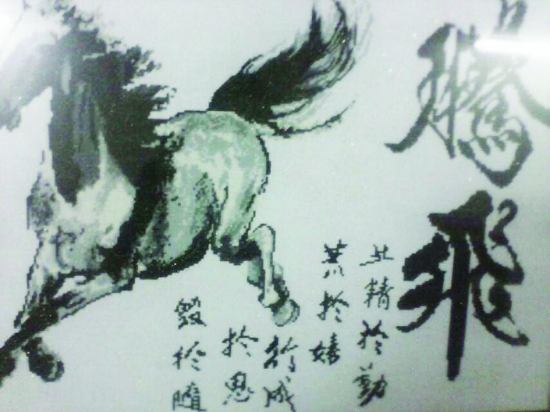 騰飛
业精於勤
荒於嬉
行成
於思
毀於隨